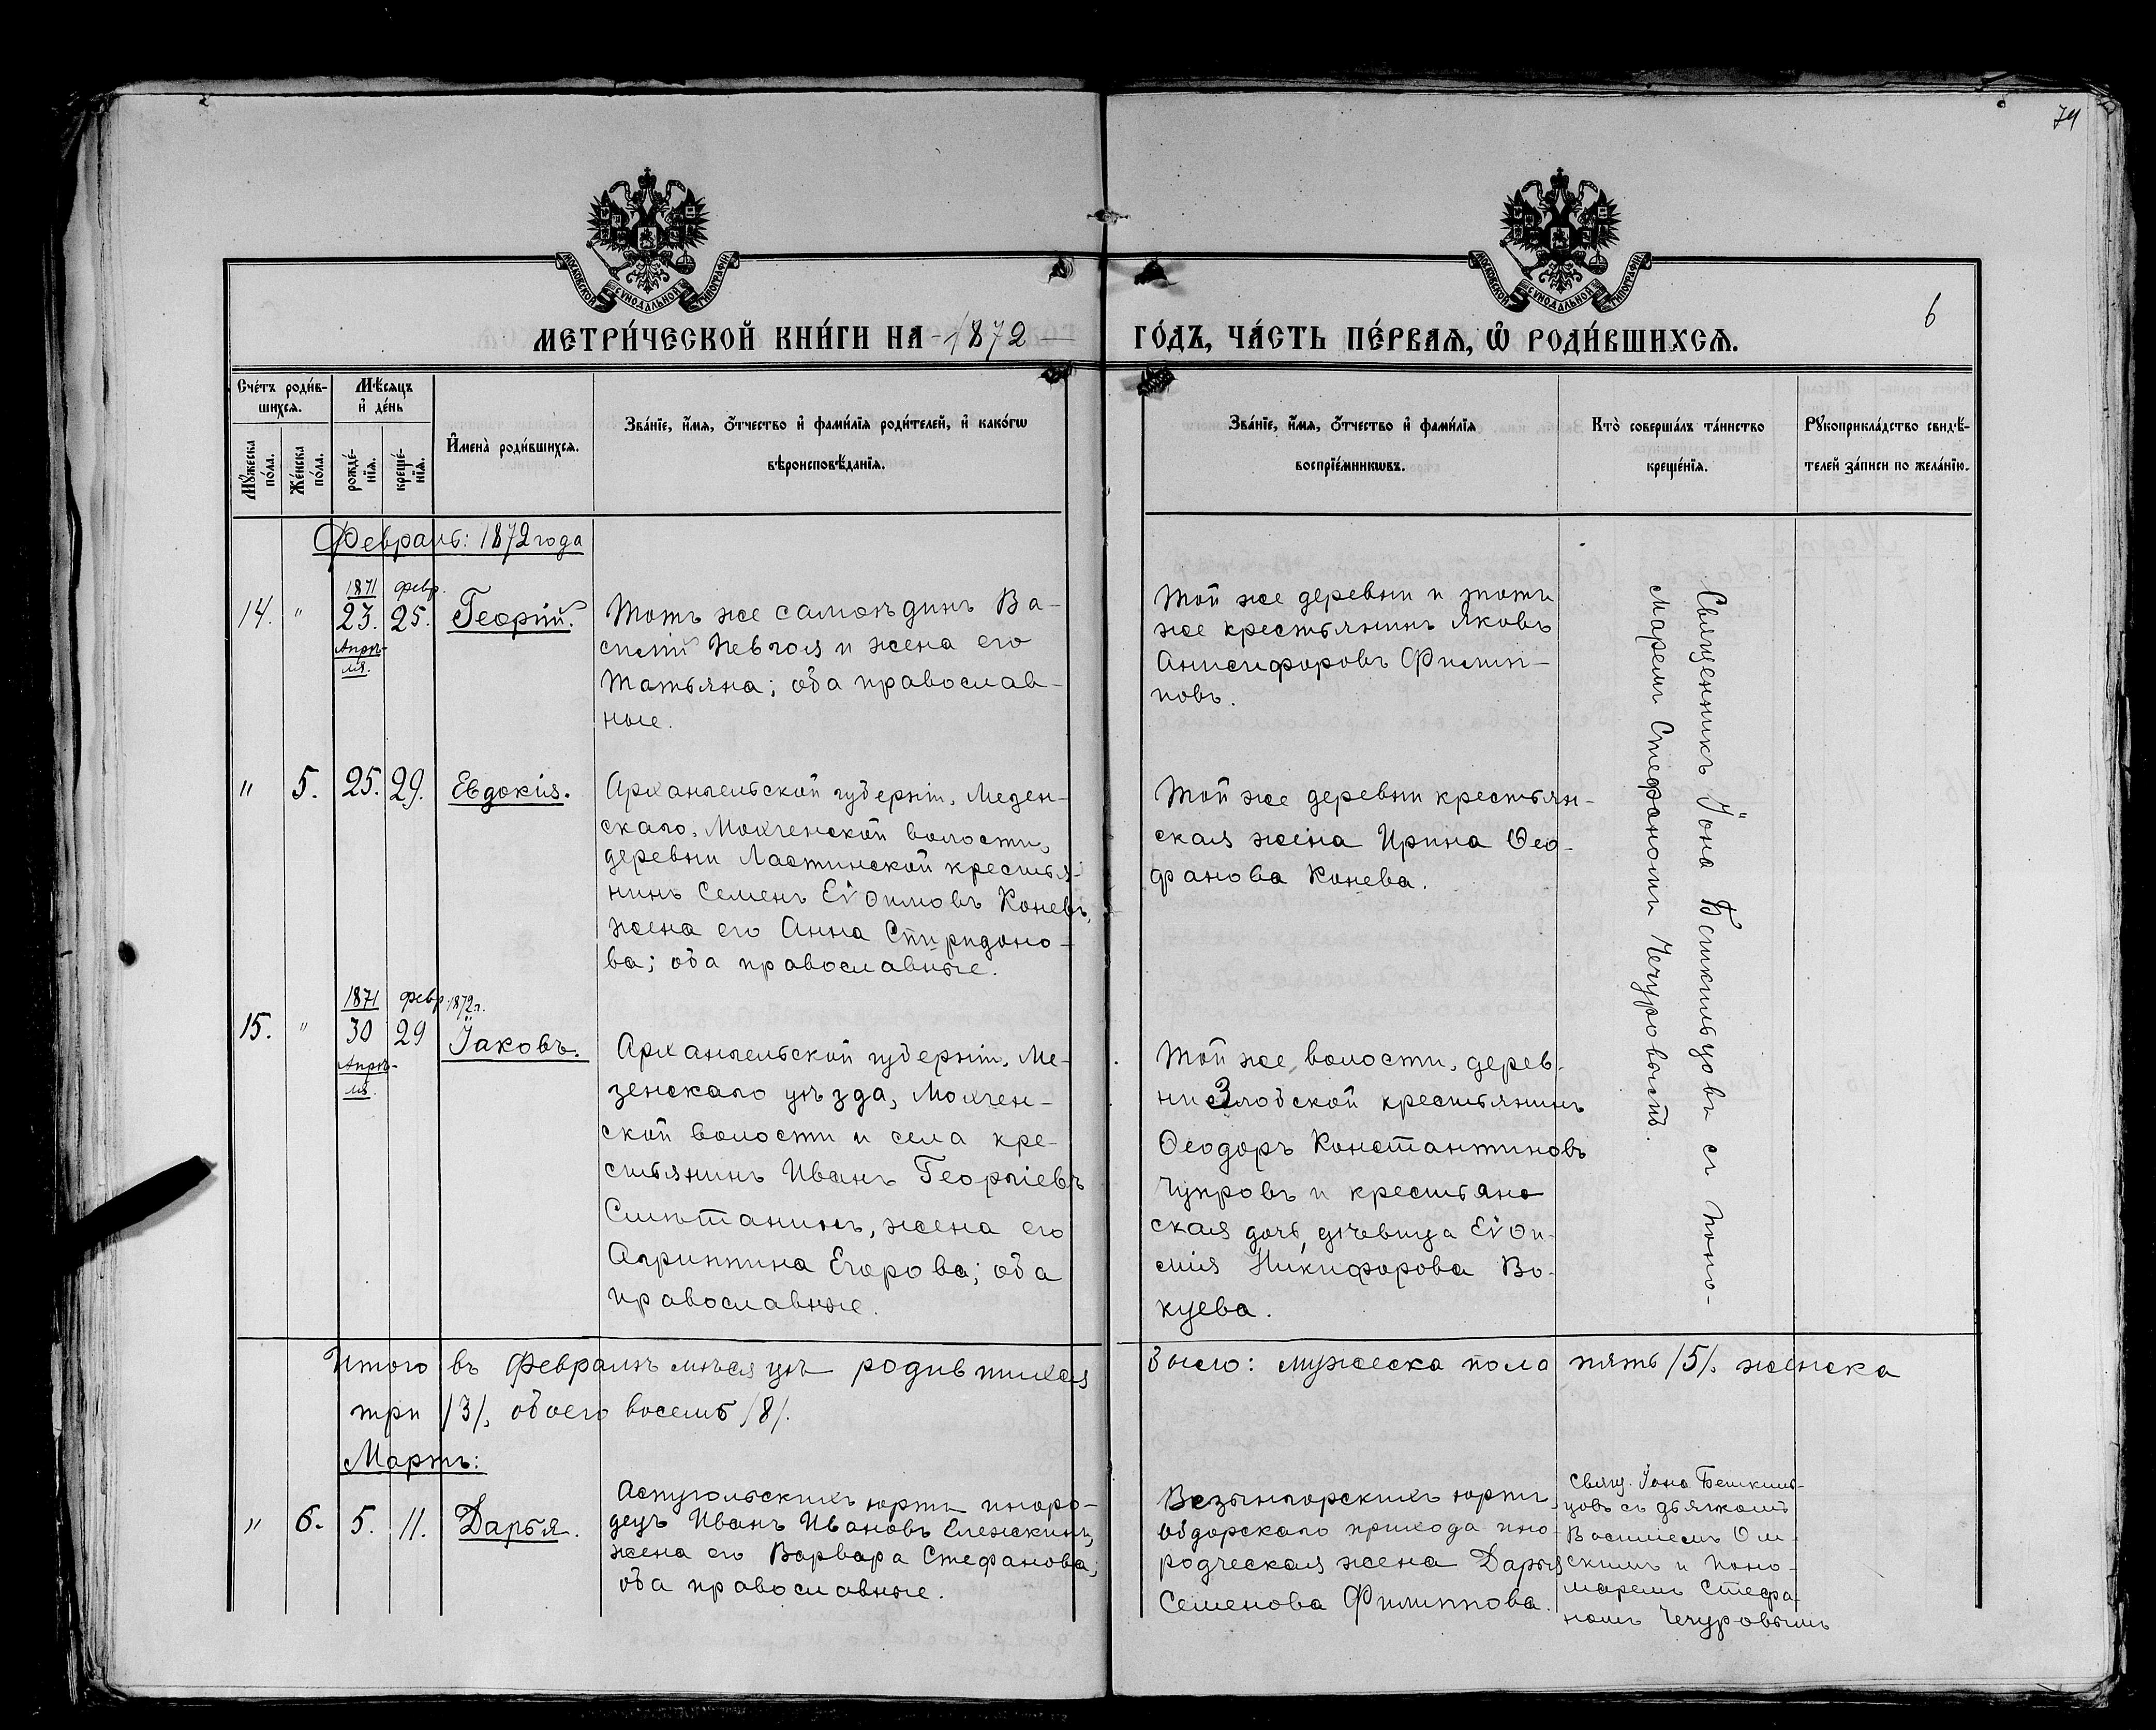 74
6
МОСКОВСКОЙ СѴНОДАЛЬНОЙ ТИПОГРАФІИ
МОСКОВСКОЙ СѴНОДАЛЬНОЙ ТИПОГРАФІИ
МЕТРИ́ЧЕСКОЙ КНИ́ГИ НА 1872 ГО́ДЪ, ЧА́СТЬ ПЕ́РВАѦ, Ѡ҆ РОДИ́ВШИХСѦ.
Сче́тъ роди́в-
шихсѧ.
Мꙋ́жеска по́ла.
Же́нска по́ла.
Мѣ́сѧцъ
и҆ де́нь
рожде́-
нїѧ.
креще́-
нїѧ.
И҆мена̀ роди́вшихсѧ.
Зва́нїе, и҆́мѧ, ѻ҆́тчество и҆ фами́лїѧ роди́телей, и҆ како́гѡ
вѣроисповѣ́данїѧ.
Зва́нїе, и҆́мѧ, ѻ҆́тчество и҆ фами́лїѧ
воспрїе́мникѡвъ.
Кто̀ соверша́лъ та́инство
креще́нїѧ.
Рꙋкоприкла́дство свидѣ́-
телей за́писи по жела́нїю.
Февраль: 1872 года
14. " 1871 23. Апрѣ-
ля.
февр. 25.
Георгій.
Тотъ же самоѣдинъ Ва-
силій и жена его
Татьяна; оба православ-
ные.
Той же деревни и
же крестьянинъ Яковъ
Анисифоровъ Филип-
повъ.
Священникъ Іона Бешкильцовъ съ поно-
маремъ Стефаномъ Чечуровымъ.
" 5. 25. 29. Евдокія.
Архангельской губерніи, Мезен-
скаго, Мохченской волости,
деревни Ластинской крестья-
нинъ Семенъ Евѳимовъ Коневъ,
жена его Анна Спиридоно-
ва; оба православные.
Той же деревни крестьян-
ская жена Ирина Ѳео-
фанова Конева.
15. " 1871 30 Апрѣ-
ля.
февр. 1872 г. 29
Іаковъ.
Архангельской губерніи, Ме-
зенскаго уѣзда, Мохчен-
ской волости и села кре-
стьянинъ Иванъ Георгіевъ
Сметанинъ, жена его
Агриппина Егорова; оба
православные.
Той же волости, дерев-
ни Злобской крестьянинъ
Ѳеодоръ Константиновъ
Чупровъ и крестьян-
ская дочь, дѣвица Евѳи-
мія Никифорова Во-
куева.
Итого въ Февралѣ мѣсяцѣ родившихся было: мужеска пола пять /5/. женска
три /3/, обоего восемь /8/.
Мартъ:
" 6. 5. 11. Дарья.
юртъ иноро-
децъ Иванъ Ивановъ
жена его Варвара Стефанова;
оба православные.
юртъ
обдорскаго прихода ино-
родческая жена Дарья
Семенова Филиппова.
Свящ. Іона Бешкиль-
цовъ съ дьячкомъ
Василіемъ Ом-
скимъ и поно-
маремъ Стефа-
номъ Чечуровымъ